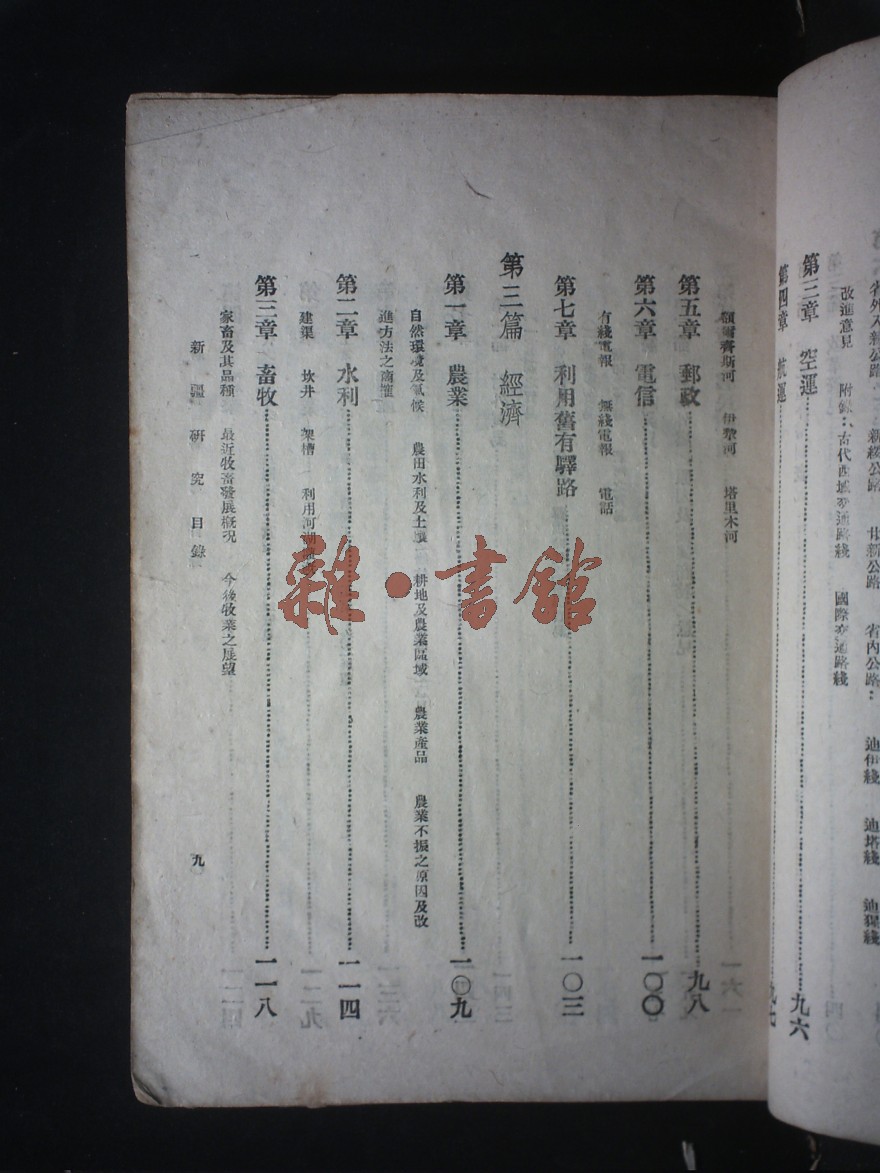 省外入新公路： 新綏公路 甘新公路 省內公路： 迪伊綫 迪塔綫 迪猩綫
改進意見 附錄：古代西域交通路綫 國際交通路綫
第三章 空運 九六
第四章 航運 九七
額爾齊斯河 伊犂河 塔里木河
第五章 郵政 九八
第六章 電信 一〇〇
有綫電報 無綫電報 電話
第七章 利用舊有驛路 一〇三
第三篇 經濟
第一章 農業 一〇九
自然環境及氣候 農田水利及土壤 耕地及農業區域 農業產品 農業不振之原因及改
進方法之商榷
第二章 水利 一一四
建渠 坎井 架槽 利用河湖
第三章 畜牧 一一八
家畜及其品種 最近牧畜發展概況 今後牧業之展望
新疆研究目錄 九
雜·書館